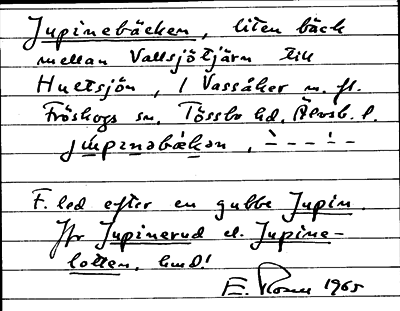 Jupinebäcken, liten bäck
mellan Vallsjötjärn till
Hultsjön, i Vassåker m. fl.
Fröskogs sn. Tössbo hd. Älvsb. l.
jupinəbækən,
F. led efter en gubbe Jupin.
Jfr Jupinerud el. Jupine-
lotten, hmd!
E. Rosen 1965